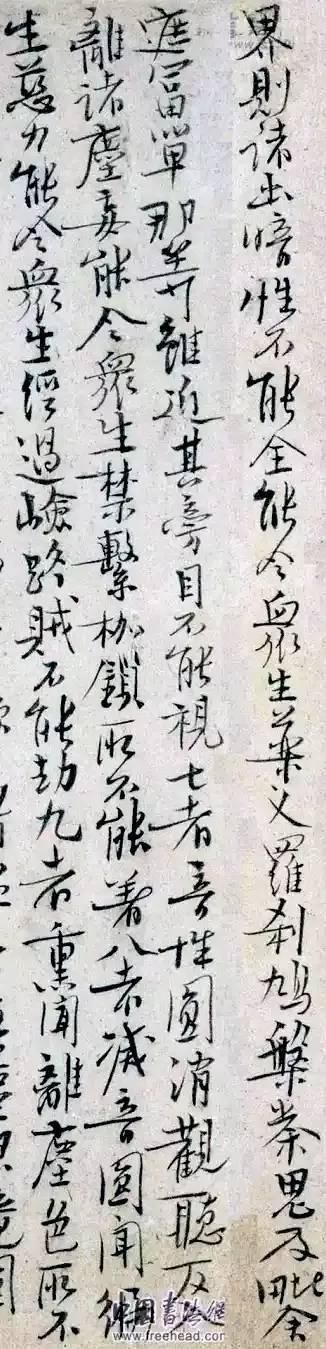 界則諸幽暗性不能全能令衆生藥叉羅剎鳩槃茶鬼及毗舍
遮富單那等雖近其旁目不能視七者音性圓消觀聽反
離諸塵妄能令衆生禁繫枷鎖所不能著八者滅音圓聞徧
生慈力能令衆生經過險路賊不能劫九者熏聞離塵色所不
中国书法网
www.freehead.com